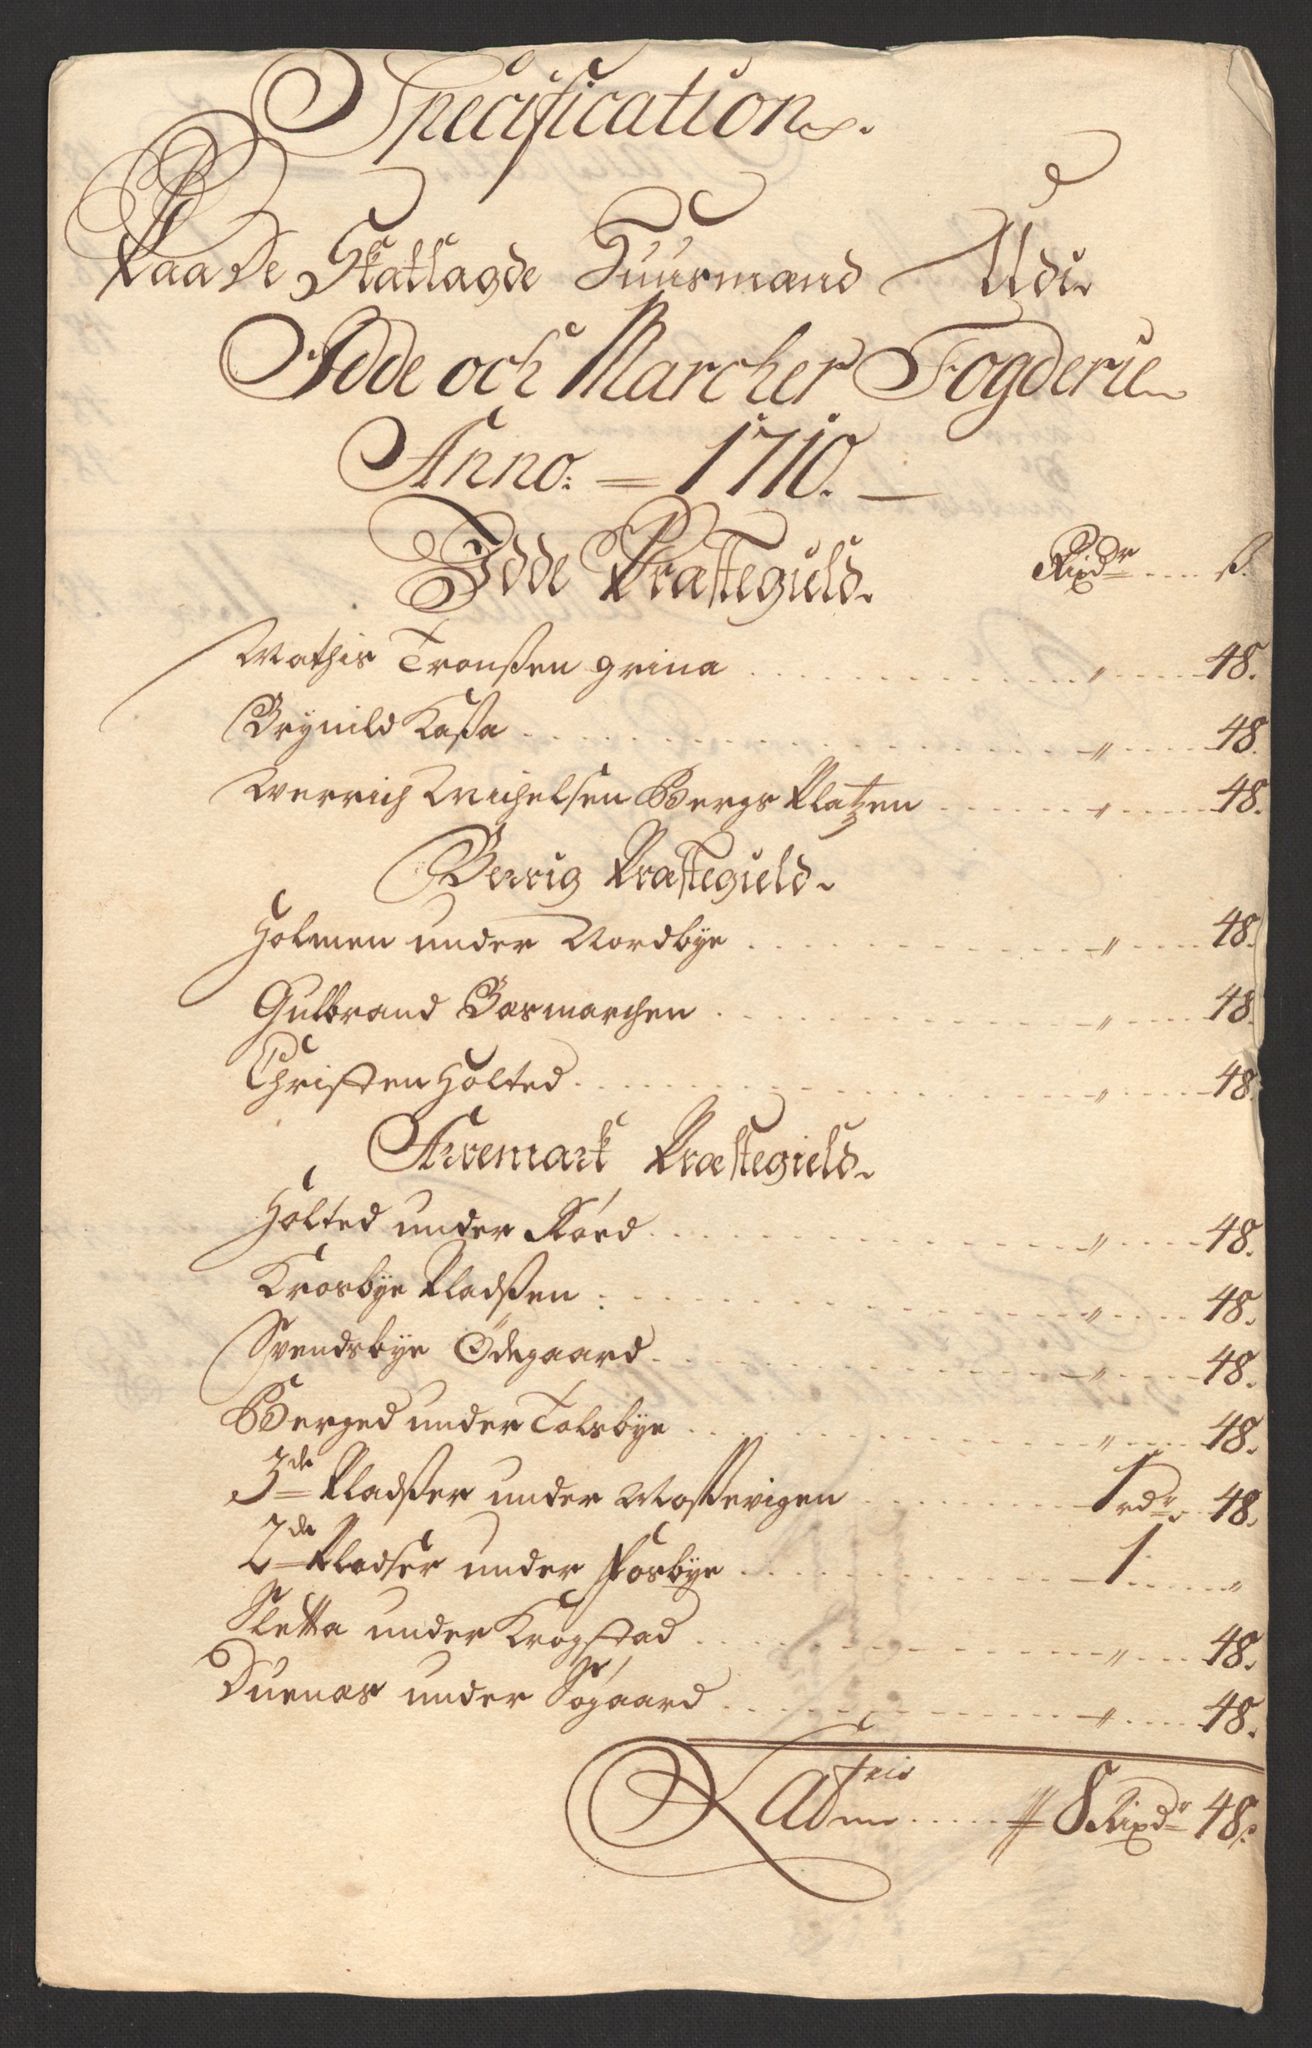 Specification.
Paa De Skatlagde Huusmænd Udi
Idde och Marcher Fogderie
Anno: = 1710. —
Idde Præstegield. Rixdr .... ß.
Mathis Tronßen grina " 48.
Brynild Kaßa " 48.
Werrich Michelsen Bergs Platzen " 48.
Berrig Præstegield.
Holmen under Nordbye " 48.
Gulbrand Basmarchen " 48.
Christen Holted " 48.
Arremark Præstegield.
Holted under Kiöed " 48.
Krosbye Pladßen " 48.
Svendsbye Ödegaard " 48.
Berged under Tolsbye " 48.
3de Pladßer under Moßevigen 1 rdr 48.
2de Pladser under Fosbye 1 "
Sletta under Krogstad " 48.
Duenæs under Sögaard " 48.
Latus 8 Rixdr 48 ß.